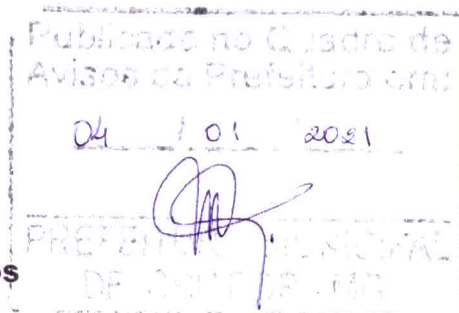 Publicado no Quadro de
Avisos da Prefeitura em:
04 / 01 2021
PREFEITURA MUNICIPAL
os
DE